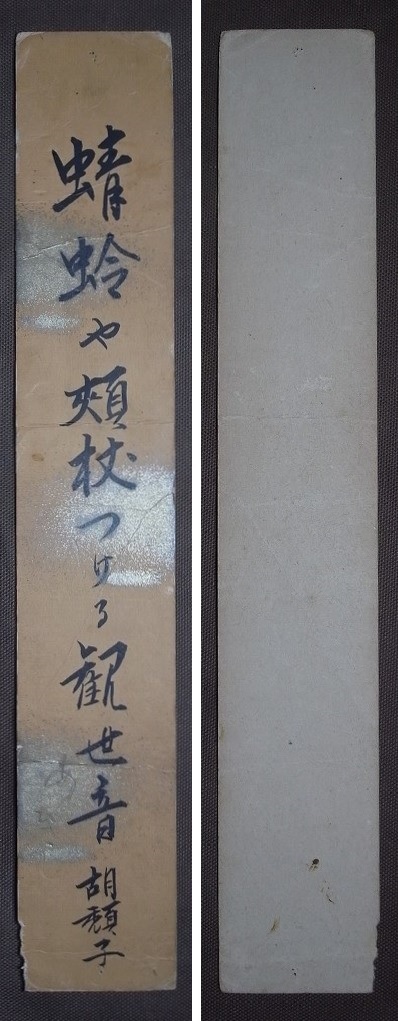 蜻蛉や頬杖つける観世音 胡頽子